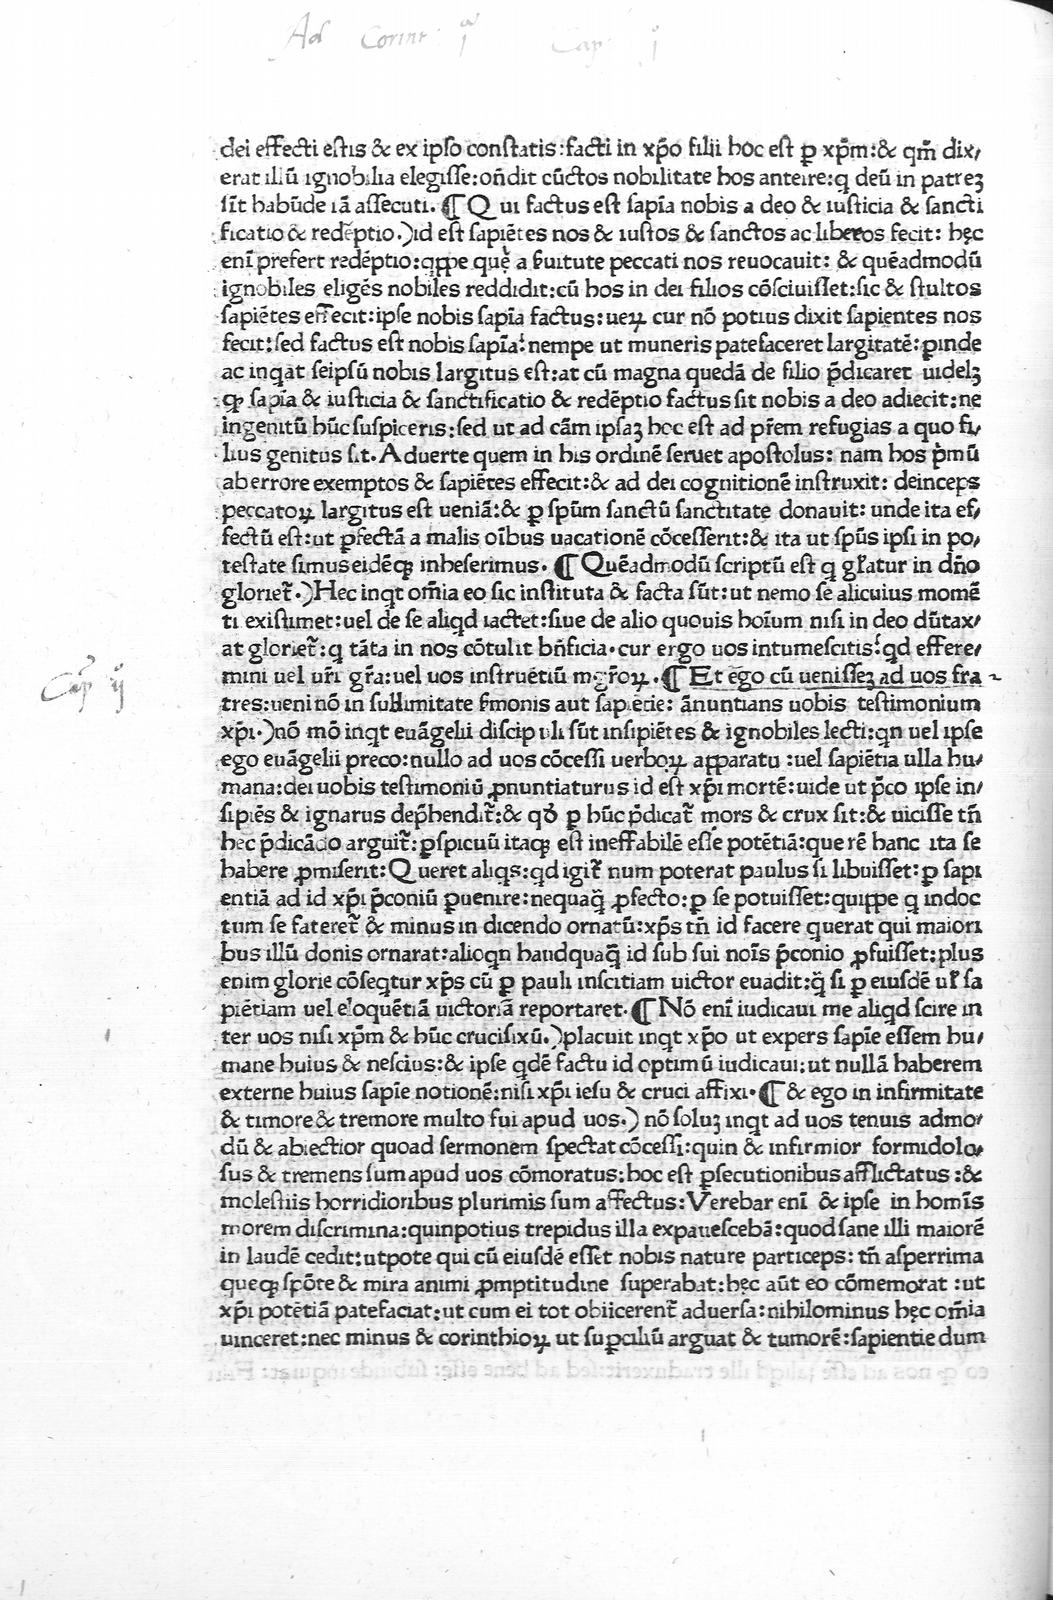 Ad Corint j Cap j
dei effecti estis & ex ipso constatis:facti in xp̄o filii hoc est ꝑ xp̄m:& qm̄ dix/
erat illū ignobilia elegisse:on̄dit cūctos nobilitate hos anteire:q deū in patreꝫ
sīt habūde iā assecuti.¶Qui factus est sapīa nobis a deo & iusticia & sancti
ficatio & redēptio.)id est sapiētes nos & iustos & sanctos ac liberos fecit: hęc
enī prefert redēptio:qꝓpe quę̄ a ẜuitute peccati nos reuocauit: & quēadmodū
ignobiles eligēs nobiles reddidit:cū hos in dei filios cōsciuisset:sic & stultos
sapiētes effecit:ipse nobis sapīa factus:ueꝝ cur nō potius dixit sapientes nos
fecit:sed factus est nobis sapīa:nempe ut muneris patefaceret largitatē:ꝓinde
ac inqat seipsū nobis largitus est:at cū magna quedā de filio p̄dicaret uidelꝫ
ꝙ sapīa & iusticia & sanctificatio & redēptio factus sit nobis a deo adiecit:ne
ingenitū hūc suspiceris:sed ut ad cām ipsaꝫ hoc est ad pr̄em refugias a quo fi/
lius genitus sit.Aduerte quem in his ordinē seruet apostolus: nam hos p̄mū
ab errore exemptos & sapiētes effecit:& ad dei cognitionē instruxit: deinceps
peccatoꝝ largitus est ueniā:& ꝑ spūm sanctū sanctitate donauit: unde ita ef/
fectū est:ut ꝑfectā a malis oībus uacationē cōcesserit:& ita ut spūs ipsi in po/
testate simus eidēqꝫ inheserimus.¶Quēadmodū scriptū est q gl̄iatur in dn̄o
glorieť.)Hec inqt om̄ia eo sic instituta & facta sūt:ut nemo se alicuius momē
ti existimet:uel de se aliqd iactet:siue de alio quouis hoīum nisi in deo dūtax/
at glorieť:q tāta in nos cōtulit bn̄ficia.cur ergo uos intumescitis:qd effere/
mini uel ur̄i gr̄a:uel uos instruētiū mgr̄oꝝ.¶Et ego cū uenisseꝫ ad uos fra
tres:ueni nō in sublimitate ẜmonis aut sapiētie: ānuntians uobis testimonium
xp̄i.)nō mō inqt euāgelii discipuli sūt insipiētes & ignobiles lecti:qn uel ipse
ego euāgelii preco:nullo ad uos cōcessi uerboꝝ apꝑatu :uel sapiētia ulla hu/
mana:dei uobis testimoniū ꝓnuntiaturus id est xp̄i mortē:uide ut p̄co ipse in/
sipiēs & ignarus dep̄hendiť:& qđ ꝑ hūc p̄dicať mors & crux sit:& uicisse tn̄
hec p̄dicādo arguiť:ꝑspicuū itaqꝫ est ineffabilē esse potētiā:que rē hanc ita se
habere ꝓmiserit:Queret aliqs:qd igiť num poterat paulus si libuisset:ꝑ sapi
entiā ad id xp̄i p̄coniū ꝑuenire:nequaq̄ ꝓfecto:ꝑ se potuisset:quippe q indoc
tum se fatereť & minus in dicendo ornatū:xp̄s tn̄ id facere querat qui maiori
bus illū donis ornarat:alioqn haudquaq̄ id sub sui noīs p̄conio ꝓfuisset:plus
enim glorie cōseqtur xp̄s cū ꝑ pauli inscitiam uictor euadit:q̄ si ꝑ eiusdē ul̄ sa
piētiam uel eloquētiā uictoriā reportaret.¶Nō enī iudicaui me aliqd scire in
ter uos nisi xp̄m & hūc crucifixū.)placuit inqt xp̄o ut expers sapīe essem hu/
mane huius & nescius:& ipse qdē factu id optimū iudicaui:ut nullā haberem
externe huius sapīe notionē:nisi xp̄i iesu & cruci affixi.¶& ego in infirmitate
& timore & tremore multo fui apud uos.) nō soluꝫ inqt ad uos tenuis admo/
dū & abiectior quoad sermonem spectat cōcessi:quin & infirmior formidolo/
sus & tremens sum apud uos cōmoratus:hoc est ꝑsecutionibus afflictatus :&
molestiis horridioribus plurimis sum affectus:Verebar enī & ipse in homīs
morem discrimina:quinpotius trepidus illa expauescebā:quod sane illi maiorē
in laudē cedit:utpote qui cū eiusdē esset nobis nature particeps: tn̄ asperrima
queqꝫ spōte & mira animi ꝓmptitudine superabat:hęc aūt eo cōmemorat :ut
xp̄i potētiā patefaciat:ut cum ei tot obiicerenť aduersa:nihilominus hęc om̄ia
uinceret:nec minus & corinthioꝝ ut suꝑciliū arguat & tumorē:sapientie dum
Cap ij